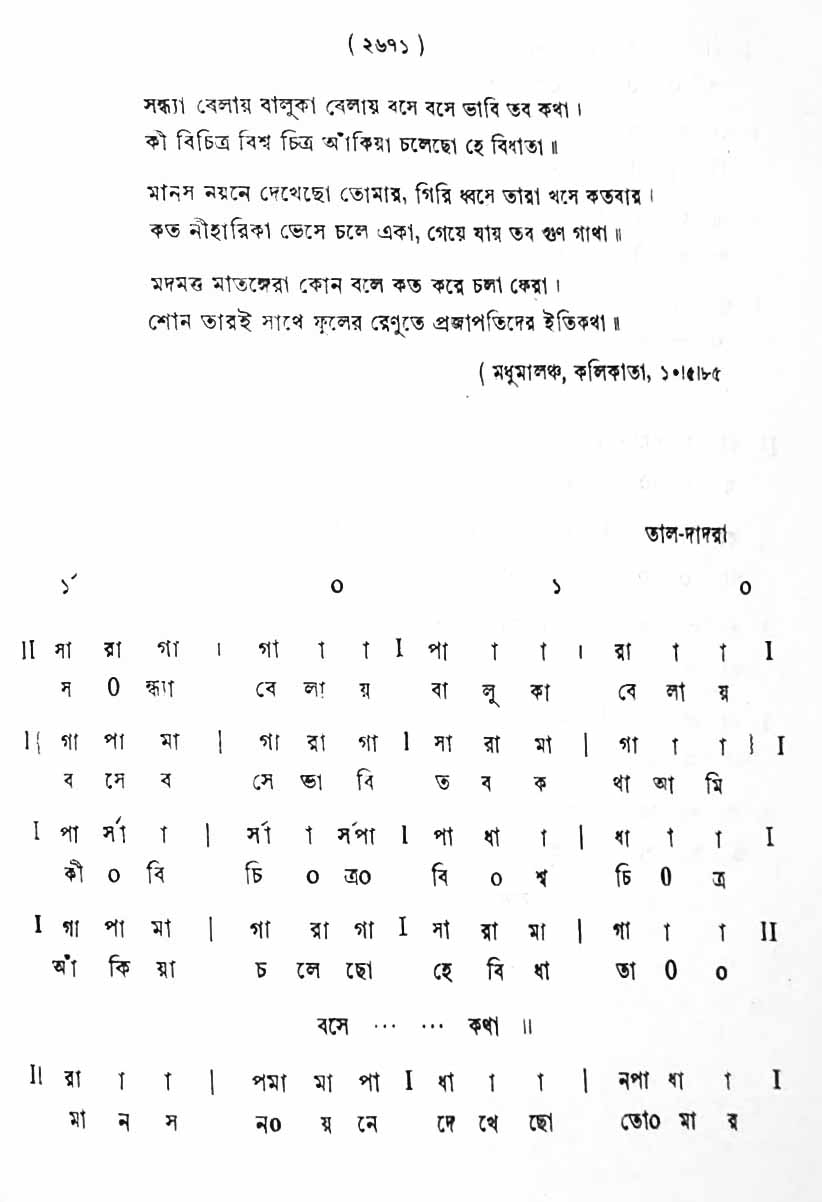 ( ২৬৭১ )
সন্ধ্যা বেলায় বালুকা বেলায় বসে বসে ভাবি তব কথা ।
কী বিচিত্র বিশ্ব চিত্র আঁকিয়া চলেছো হে বিধাতা ॥
মানস নয়নে দেখেছো তোমার, গিরি ধ্বসে তারা খসে কতবার ।
কত নীহারিকা ভেসে চলে একা, গেয়ে যায় তব গুণ গাথা ॥
মদমত্ত মাতঙ্গেরা কোন বলে কত করে চলা ফেরা ।
শোন তারই সাথে ফুলের রেণুতে প্রজাপতিদের ইতিকথা ॥
( মধুমালঞ্চ, কলিকাতা, ১০।৫।৮৫
তাল-দাদরা
১´ ০ ১ ০
II সা রা গা । গা া া I পা া া । রা া া I
স 0 ন্ধ্যা বে লা য় বা লু কা বে লা য়
I{ গা পা মা | গা রা গা I সা রা মা | গা া া } I
ব সে ব সে ভা বি ত ব ক থা আ মি
I পা র্সা া | র্সা া র্সপা I পা ধা া | ধা া া I
কী ০ বি চি ০ ত্র০ বি ০ শ্ব চি 0 ত্র
I গা পা মা | গা রা গা I সা রা মা | গা া া II
আঁ কি য়া চ লে ছো হে বি ধা তা 0 ০
বসে ... ... কথা ॥
II রা া া | পমা মা পা I ধা া া | নপা ধা া I
মা ন স ন০ য় নে দে খে ছো তো০ মা র